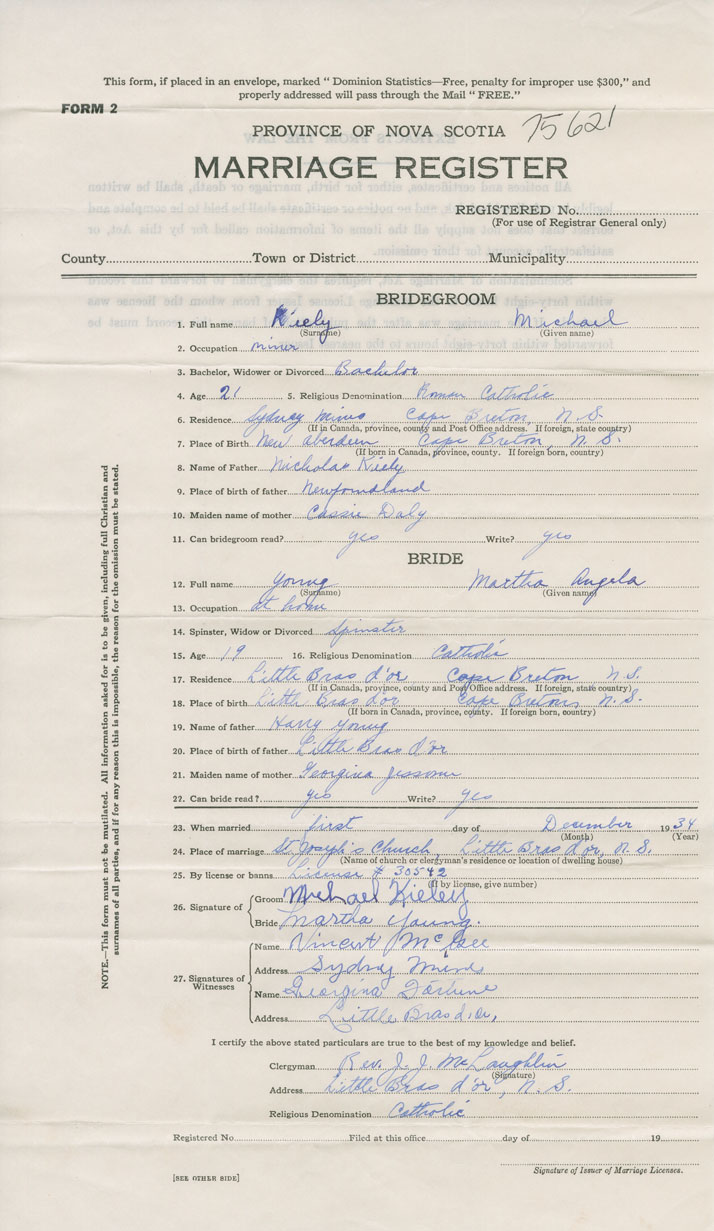 This form, if placed in an envelope, marked "Dominion Statistics—Free, penalty for improper use $300," and
properly addressed will pass through the Mail "FREE."
FORM 2
75621
PROVINCE OF NOVA SCOTIA
MARRIAGE REGISTER
REGISTERED No.
(For use of Registrar General only)
County Town or District Municipality
BRIDEGROOM
1. Full name Kiely Michael
(Surname) (Given name)
2. Occupation miner
3. Bachelor, Widower or Divorced Bachelor
4. Age 21 5. Religious Denomination Roman Catholic
6. Residence Sydney Mines Cape Breton, N.S.
(If in Canada, province, county and Post Office address. If foreign, state county)
7. Place of Birth New Aberdeen Cape Breton, N.S.
(If born in Canada, province, county. If foreign born, country)
8. Name of Father Nicholas Kiely
9. Place of birth of father Newfoundland
10. Maiden name of mother Cassie Daly
11. Can bridegroom read? yes Write? yes
BRIDE
12. Full name Young Martha Angela
(Surname) (Given name)
13. Occupation at home
14. Spinster, Widow or Divorced Spinster
15. Age 19 16. Religious Denomination Catholic
17. Residence Little Bras d'or Cape Breton N.S.
(If in Canada, province, county and Post Office address. If foreign, state country)
18. Place of birth Little Bras d'or Cape Breton, N.S.
(If born in Canada, province, county. If foreign born, country)
19. Name of father Harry Young
20. Place of birth of father Little Bras d'or
21. Maiden name of mother Georgina Jessome
22. Can bride read? yes Write? yes
23. When married first day of December 1934
(Month) (Year)
24. Place of marriage St Joseph's Church, Little Bras d'or, N.S.
(Name of church or clergyman's residence or location of dwelling house)
25. By license or banns License # 30542
(If by license, give number)
26. Signature of
Groom Michael Kieley
Bride Martha Young.
27. Signatures of Witnesses
Name Vincent
Address Sydney Mines
Name Georgina Fortune
Address Little Bras d'or,
I certify the above stated particulars are true to the best of my knowledge and belief.
Clergyman Rev. J. J. McLaughlin
(Signature)
Address Little Bras d'or, N.S.
Religious Denomination Catholic
Registered No. Filed at this office day of 19
Signature of Issuer of Marriage Licenses.
[SEE OTHER SIDE]
NOTE.—This form must not be mutilated. All information asked for is to be given, including full Christian and
surnames of all parties, and if for any reason this is impossible, the reason for the omission must be stated.